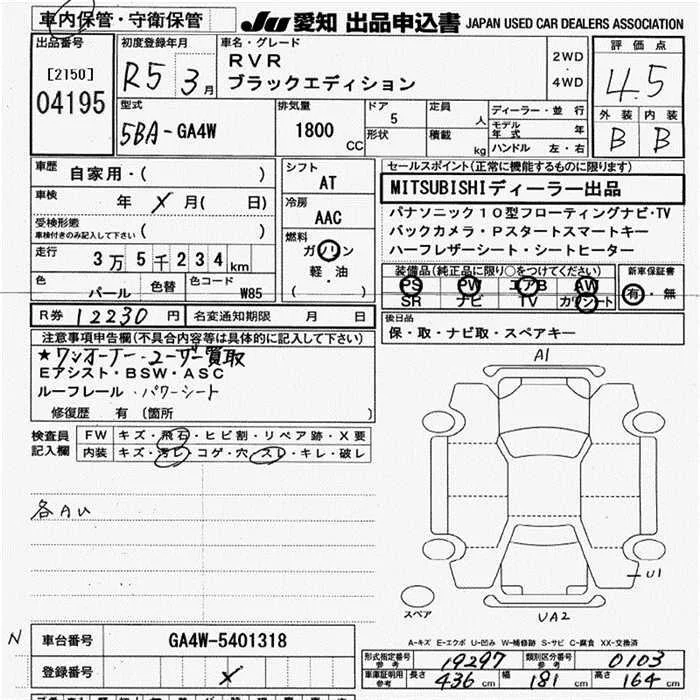 車内保管・守衛保管
JU 愛知 出品申込書 JAPAN USED CAR DEALERS ASSOCIATION
出品番号
[2150]
04195
初度登録年月
R5 3月
車名・グレード
RVR
ブラックエディション
2WD
・
4WD
評価点
4.5
外装 内装
B B
型式
5BA-GA4W
排気量
1800 CC
ドア
5
形状
定員
人
積載
kg
ディーラー・並行
モデル年式 年
ハンドル 左・右
車歴 自家用・( )
車検 年 X 月( 日)
受検形態
車検付きのみ記入して下さい ( )
走行 3万5千234km
色 パール 色替 色コード W85
シフト
AT
冷房
AAC
燃料
ガソリン
軽・油
( )
セールスポイント(正常に機能するものに限ります)
MITSUBISHIディーラー出品
パナソニック10型フローティングナビ・TV
バックカメラ・Pスタートスマートキー
ハーフレザーシート・シートヒーター
装備品(純正品に限り○をつけてください)
PS PW エアB AW
SR ナビ TV カワシート
新車保証書
有・無
R券 12230円 名変通知期限 月 日
後日品
保・取・ナビ取・スペアキー
注意事項申告欄(不具合内容等は具体的に記入して下さい)
★ワンオーナー・ユーザー買取
Eアシスト・BSW・ASC
ルーフレール・パワーシート
修復歴 有(箇所 )
検査員記入欄
FW キズ・飛石・ヒビ割・リペア跡・X要
内装 キズ・汚レ・コゲ・穴・スレ・キレ・破レ
各AU
A1
U1
スペア
UA2
A-キズ E-エクボ U-凹み W-補修跡 S-サビ C-腐食 XX-交換済
N
車台番号 GA4W-5401318
登録番号 X
形式指定番号 参考 19297 類別区分番号 参考 0103
車庫証明用 参考 長さ 436cm 幅 181cm 高さ 164cm